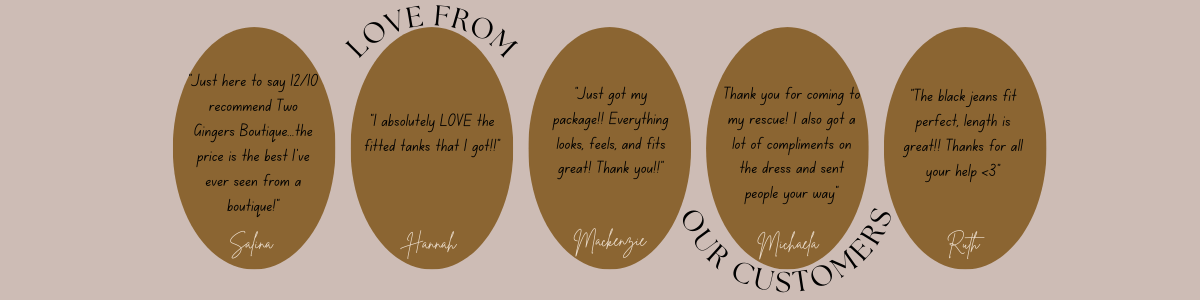 LOVE FROM
"Just here to say 12/10
recommend Two
Gingers Boutique...the
price is the best I've
ever seen from a
boutique!"
Salina
"I absolutely LOVE the
fitted tanks that I got!!"
Hannah
"Just got my
package!! Everything
looks, feels, and fits
great! Thank you!!"
Mackenzie
Thank you for coming to
my rescue! I also got a
lot of compliments on
the dress and sent
people your way"
Michaela
"The black jeans fit
perfect, length is
great!! Thanks for all
your help <3"
Ruth
OUR CUSTOMERS